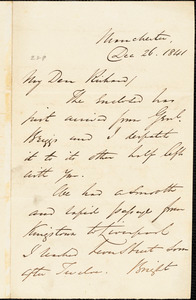 Manchester,
Dec 26. 1841
My Dear Richard/
The Enclosed has
just arrived from Genl.
Briggs and I despatch
it to it other half left
with you.
We had a smooth
and rapid passage from
Kingstown to Liverpool
I reached home
after Twelve. Bright